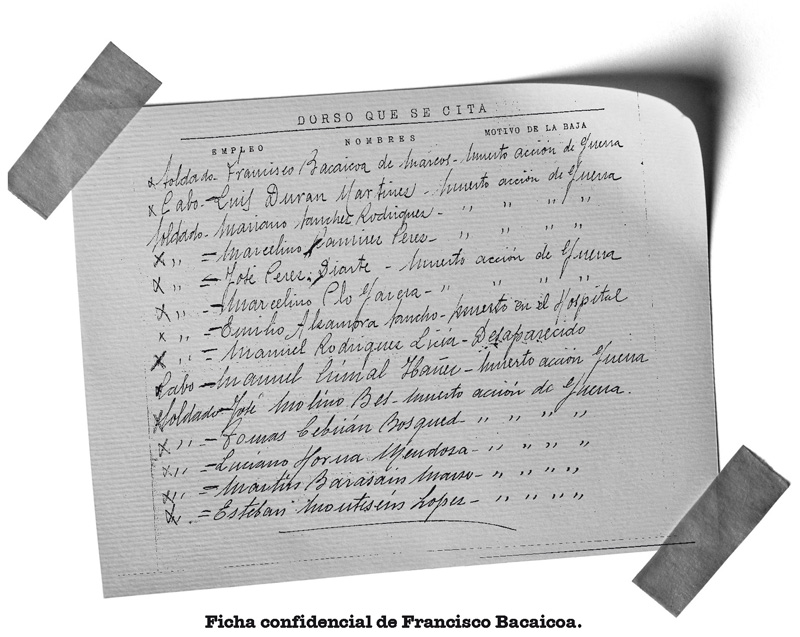 DORSO QUE SE CITA
EMPLEO NOMBRES MOTIVO DE LA BAJA
x Soldado - Francisco Bacaicoa de Marcos - Muerto acción de Guerra
x Cabo - Luis Duran Martines - Muerto acción de Guerra
Soldado - Mariano Sanches Rodrigues - " " " "
x " = Marcelino Ramires Peres - " " " "
x " = José Peres Diarte - Muerto acción de Guerra
x " = Marcelino Plo Garcia - " " " "
x " = Emilio Alsamora Sancho - Muerto en el Hospital
x " = Manuel Rodrigues Licia - Desaparecido
Cabo - Manuel Ibañes - Muerto acción Guerra
Soldado - José Molino Bes - Muerto acción de Guerra.
x " = Tomas Cebrián Bosqued - " " " "
x " = Luciano Horna Mendosa - " " " "
x " = Martin Barasain - " " " "
x " = Esteban Lopes - " " " "
Ficha confidencial de Francisco Bacaicoa.